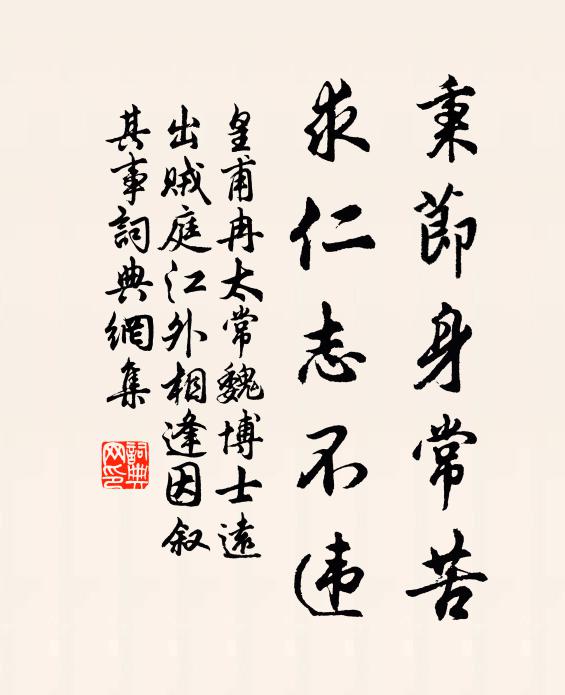 秉節身常苦
求仁志不违
皇甫冉太常魏博士遠
出賊庭江外相逢因叙
其事詞典網集
詞典
网印